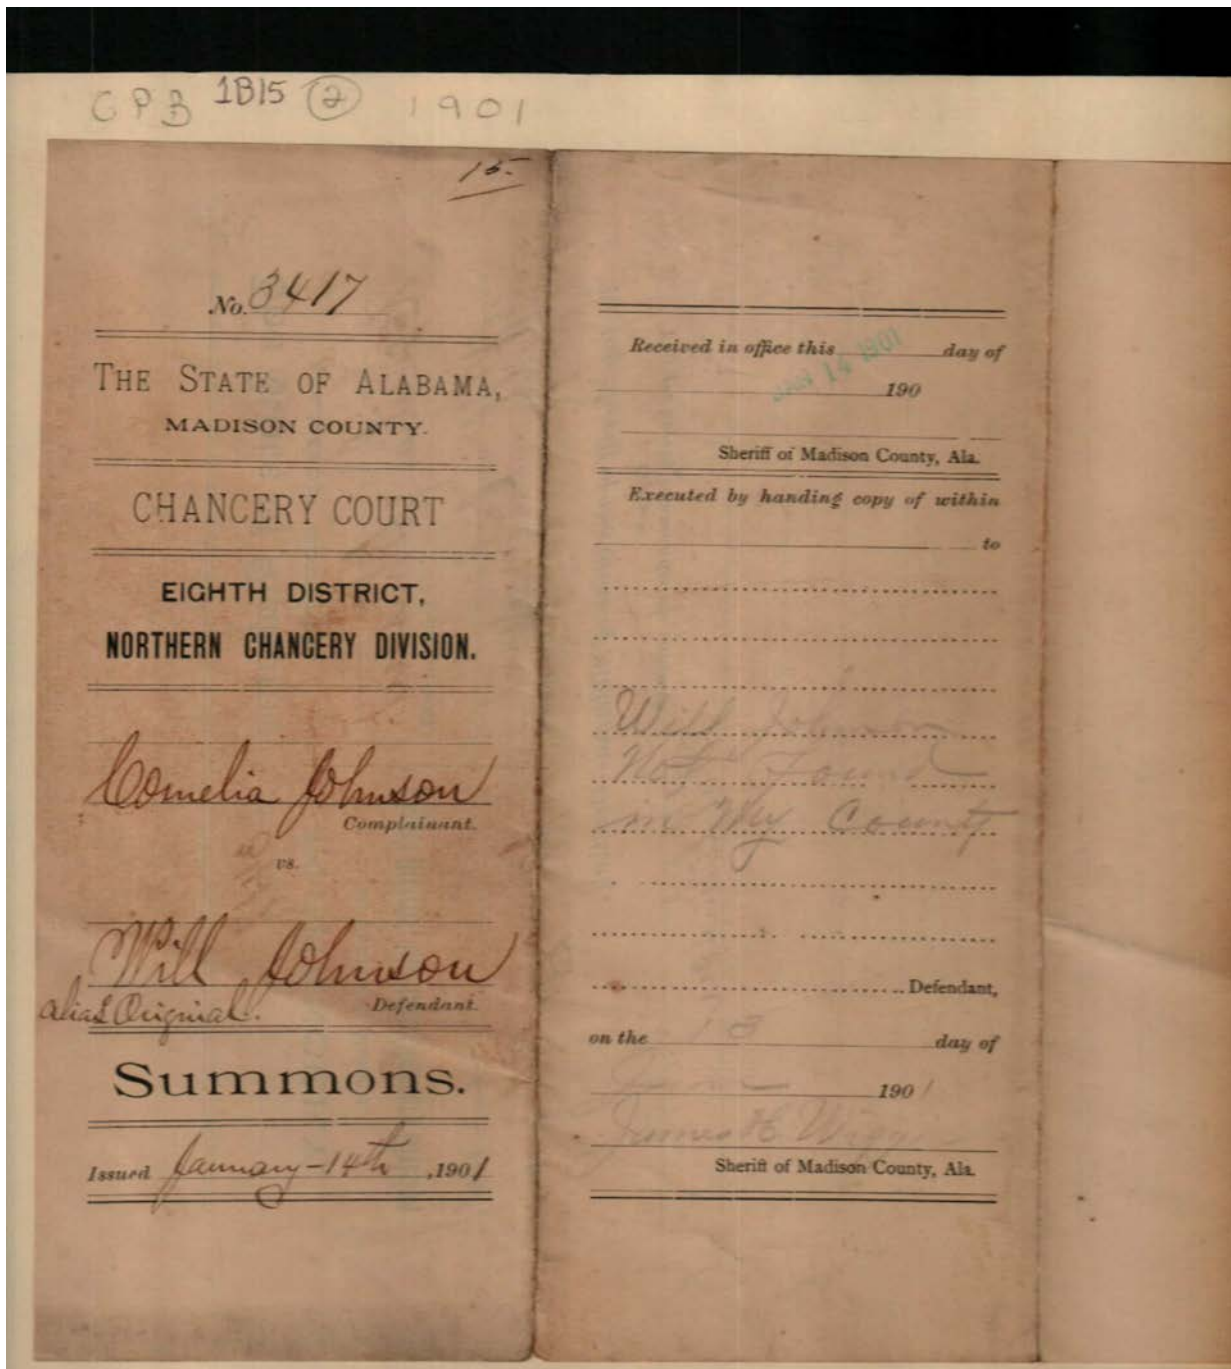 CPB 1B15 2 1901
15.
No. 3417
THE STATE OF ALABAMA,
MADISON COUNTY.
CHANCERY COURT
EIGHTH DISTRICT,
NORTHERN CHANCERY DIVISION.
Cornelia Johnson
Complainant.
vs.
Will Johnson
Defendant.
alias Original.
Summons.
Issued January - 14th, 1901
Received in office this day of
JAN 14 1901
190
Sheriff of Madison County, Ala.
Executed by handing copy of within
to
Will Johnson
Not Found
in My County
Defendant,
on the 18 day of
1901
James H
Sheriff of Madison County, Ala.